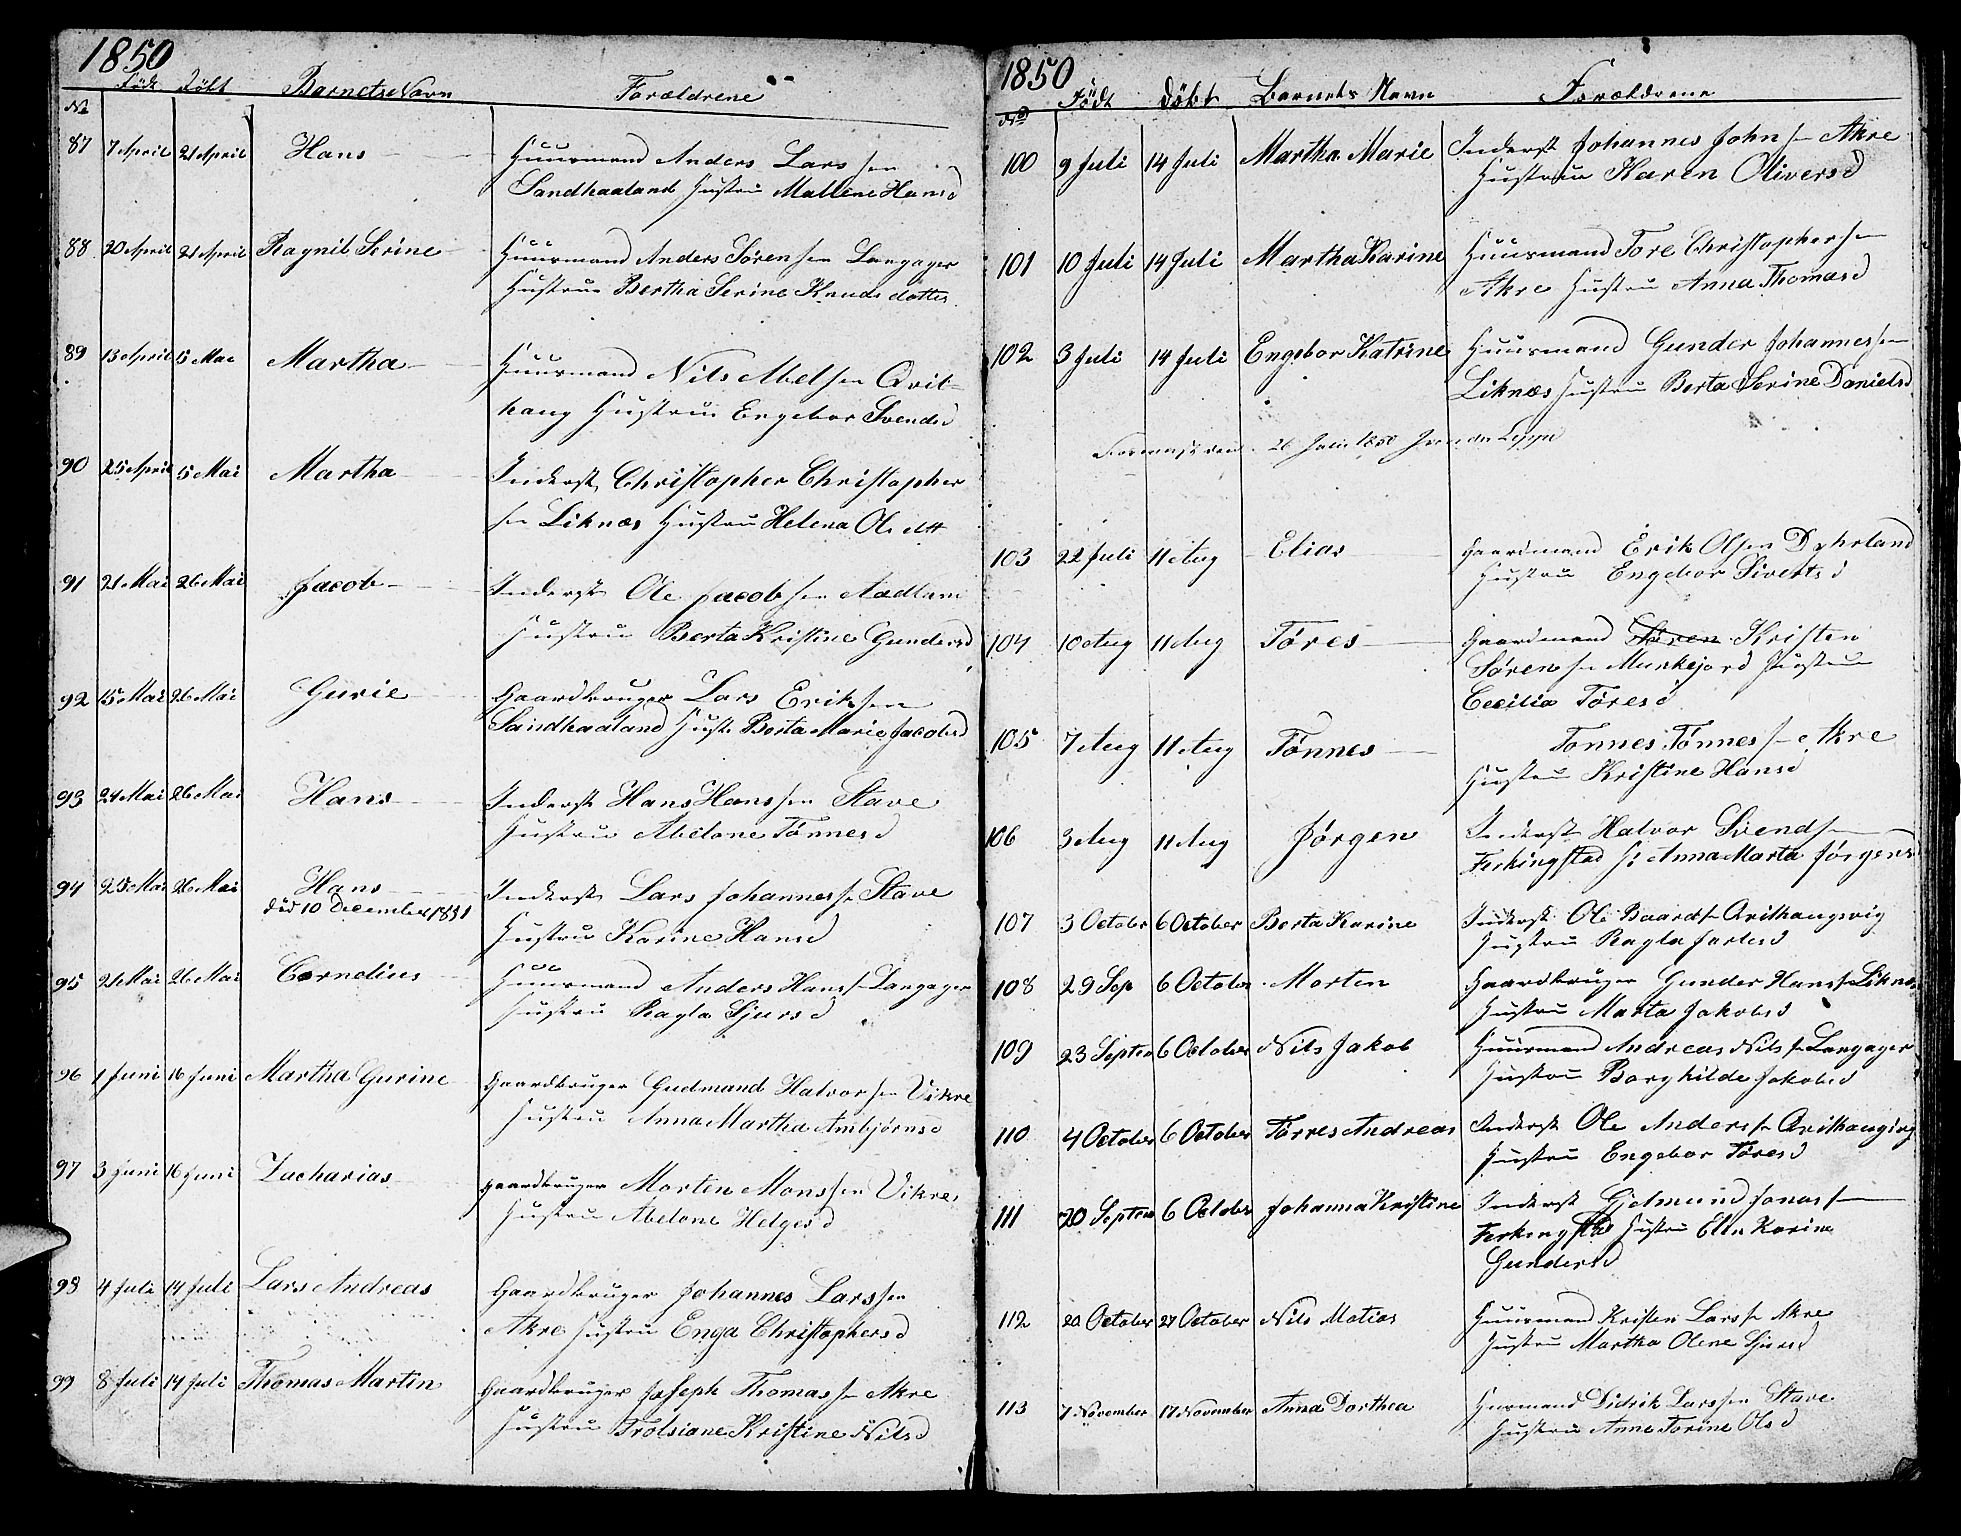 1850
No Født Døbt Barnets Navn Forældrene
87 7 April 21 April Hans Huusmand Anders Larssen
Sandhaaland Hustru Mallene Hansd
88 20 April 21 April Ragnil Serine Huusmand Anders Sørensen Langager
Hustrue Bertha Serine Knudsdotter
89 13 April 5 Mai Martha Huusmand Nils Abelsen Qvil-
haug Hustrue Engebor Svendsd
90 25 April 5 Mai Martha Inderst Christopher Christopher
sen Liknæs Hustru Helena Ole dtt
91 21 Mai 26 Mai Jacob Inderst Ole Jacobsen Aadland
Hustru Berta Kristine Gundersd
92 15 Mai 26 Mai Gurie Gaardbruger Lars Eriksen
Sandhaaland Hust Berta Marie Jacobsd
93 24 Mai 26 Mai Hans Inderst Hans Hanssen Stave
Hustru Abelone Tønnesd
94 25 Mai 26 Mai Hans Inderst Lars Johannessen Stave
död 10 December 1851
Hustru Karine Hansd
95 21 Mai 26 Mai Cornelius Huusmand Anders Hanssen Langager
Hustru Ragla Sjursd
96 1 Juni 16 Juni Martha Gurine Gaardbruger Gudmand Halvorsen Vikre
Hustru Anna Martha Ambjørnsd
97 3 Juni 16 Juni Zacharias gaardbruger Morten Monssen Vikre
Hustru Abelone Helgesd
98 4 Juli 14 Juli Lars Andreas Gaardbruger Johannes Larssen
Akre Hustru Enga Christophersd
99 8 Juli 14 Juli Thomas Martin Gaardbruger Joseph Thomassen Akre
Hustru Trolsiane Kristine Nilsd
1850
No Födt döbt Barnets Navn Forældrene
100 9 Juli 14 Juli Martha Marie Inderst Johannes Johnsen Akre
Hustrue Karen Oliversd
101 10 Juli 14 Juli Martha Karine Huusmand Tore Christophersen
Akre Hustru Anna Thomasd
102 3 Juli 14 Juli Engebor Katrine Huusmand Gunder Johannessen
Liknæs Hustru Berta Serine Danielsd
den 26 Juli 1850
103 22 Juli 11 Aug Elias Gaardmand Erik Olsen Dyhrland
Hustru Engebor Sivertsd
104 10 Aug 11 Aug Töres Gaardmand Sören Kristen
Sörensen Munkejord Hustru
Cecilia Töresd
105 7 Aug 11 Aug Tönnes Tonnes Tönnessen Akre
Hustru Kristine Hansd
106 3 Aug 11 Aug Jörgen Inderst Halvor Svendsen
Ferkingstad H: Anna Marta Jörgensd
107 3 October 6 October Berta Karine Inderst Ole Baardsen Qvilhaugsvig
Hustru Ragla Jarlesd
108 29 Sep 6 October Morten Gaardbruger Gunder Hanssen Liknes
Hustru Marta Jakobsd
109 23 Septem 6 October Nils Jakob Huusmand Andreas Nilsen Langager
Hustru Borghilde Jakobsd
110 4 October 6 October Törres Andreas Inderst Ole Anderssen Qvilhaugvig
Hustru Engebor Töresd
111 20 Septem 6 October Johanna Kristine Inderst Gjelmund Jonassen
Ferkingstad Hustru Elen Karine
Gundersd
112 20 October 27 October Nils Matias Huusmand Kristen Larssen Akre
Hustru Martha Olene Sjursd
113 7 November 17 November Anna Dorthea Husmand Didrik Larssen Stave
Hustru Anne Torine Olsd